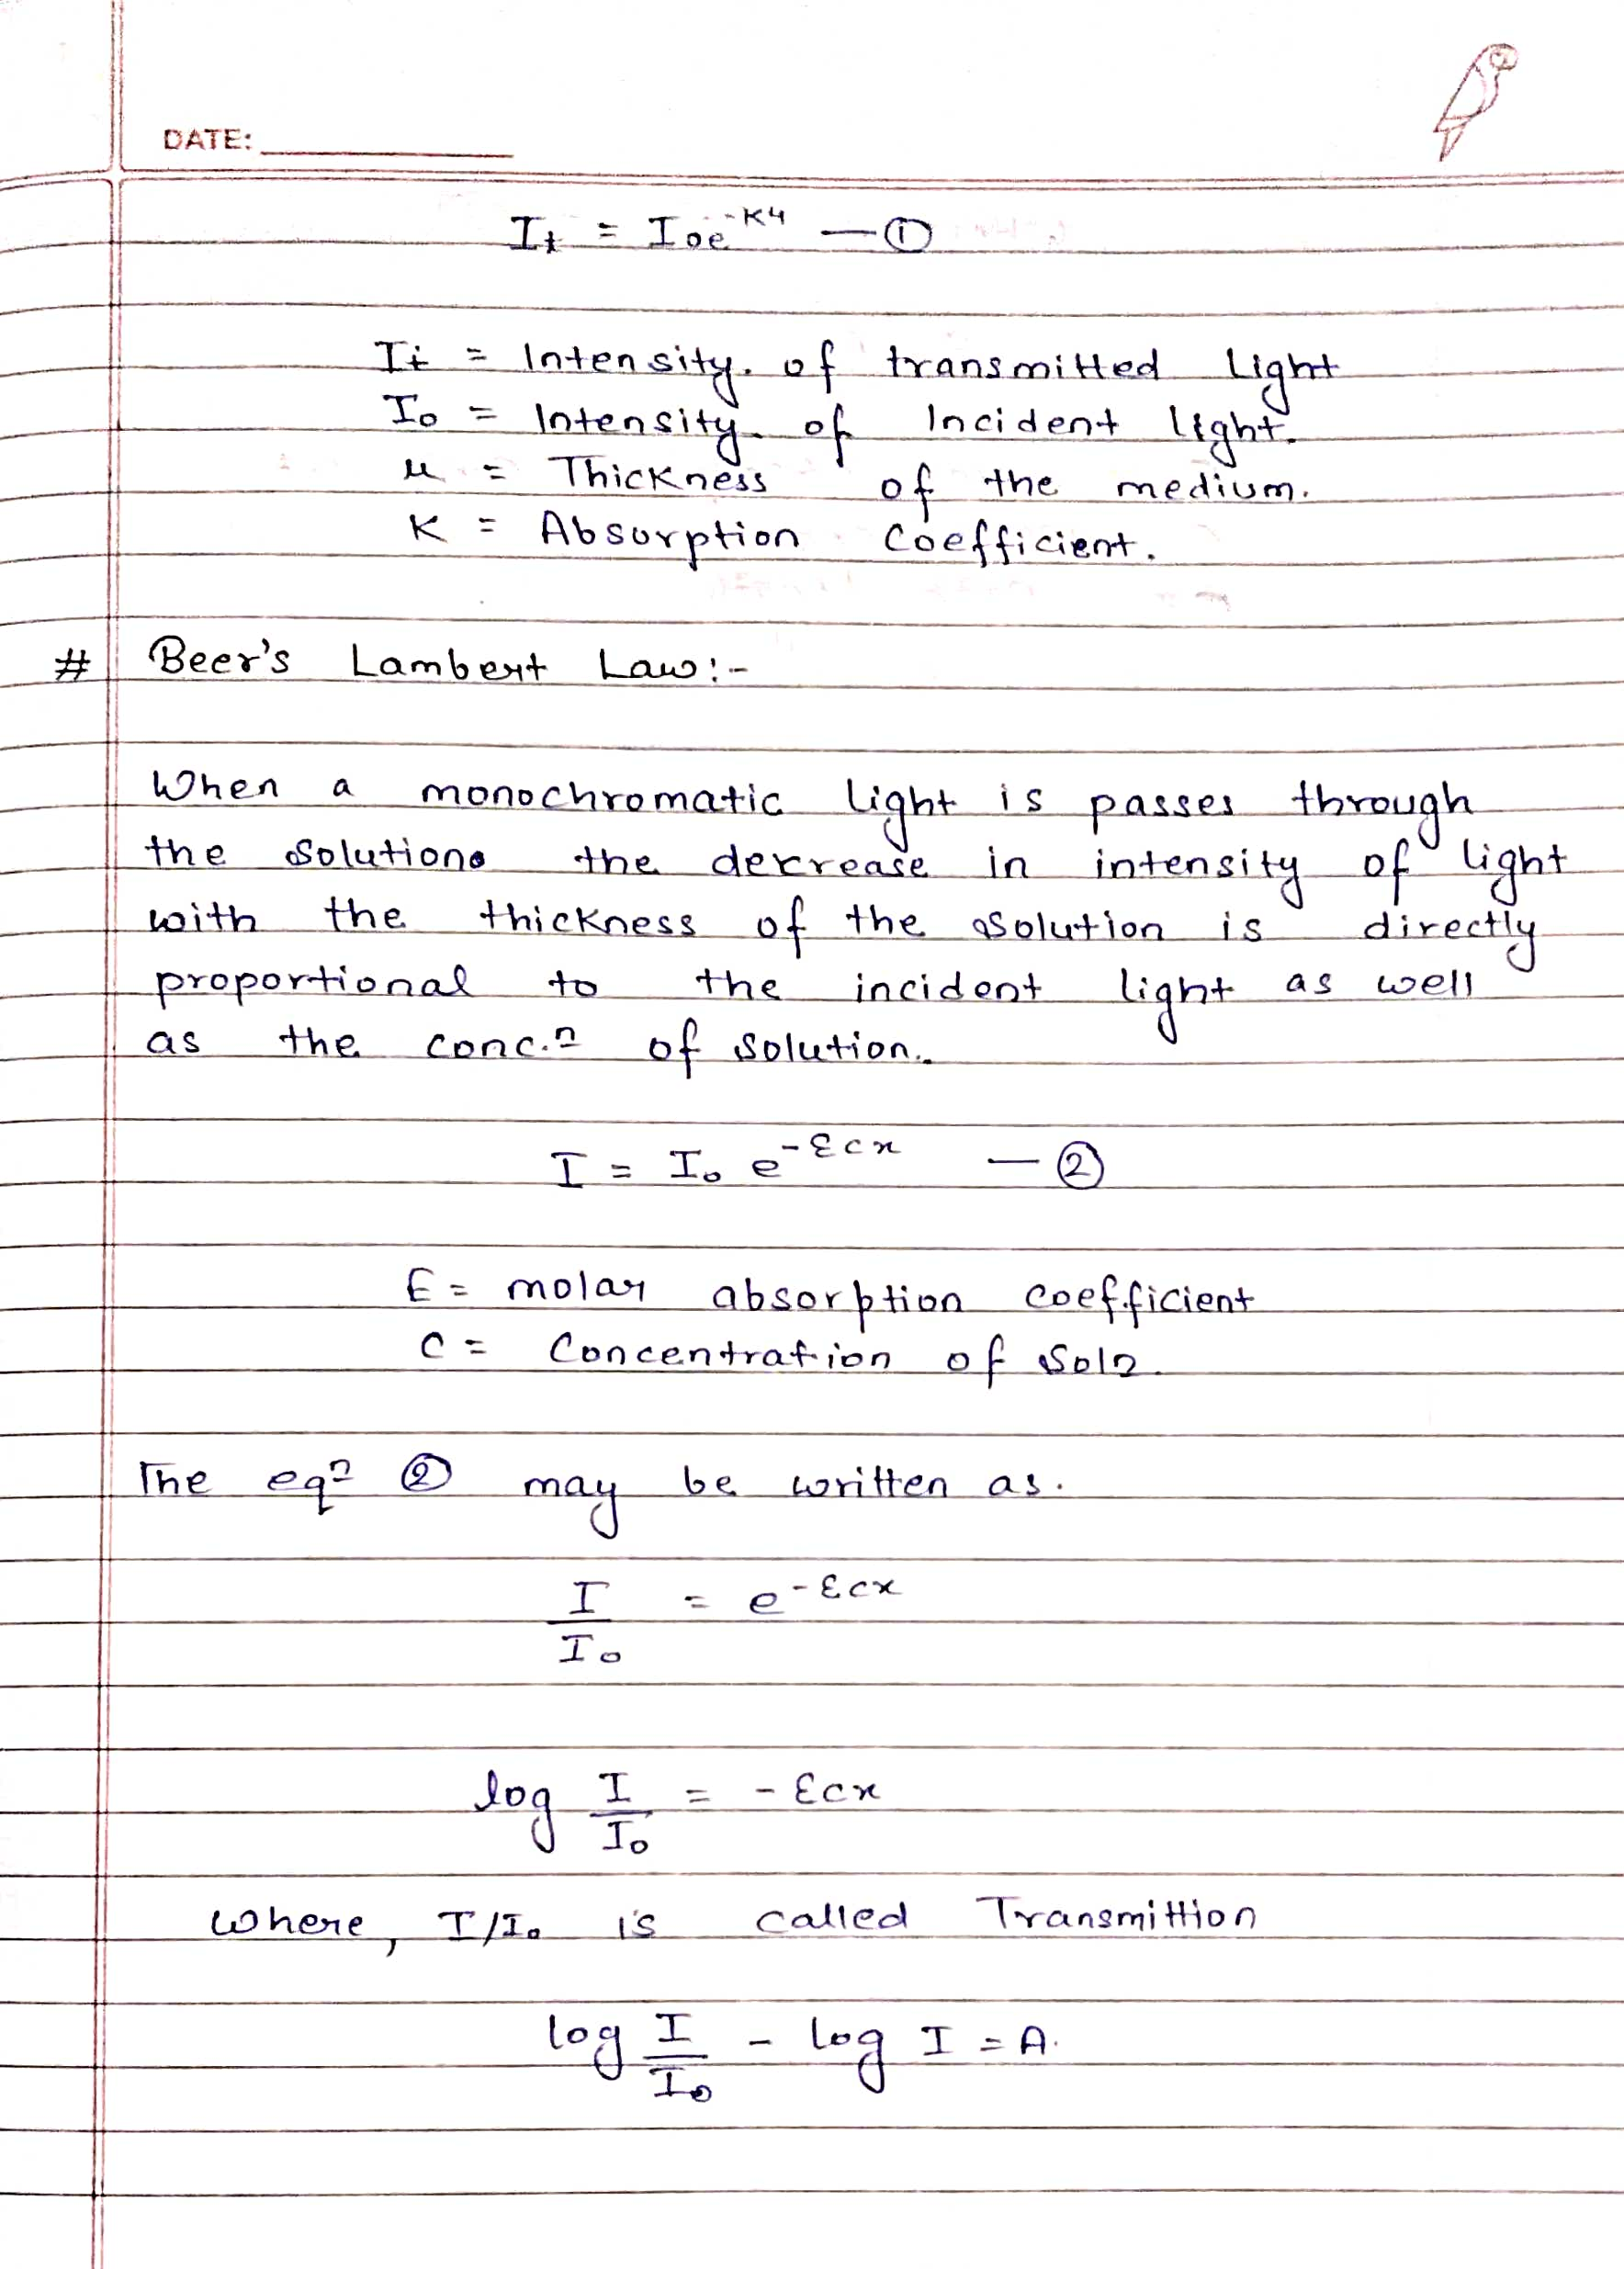 DATE:
It = Ioe^-K4 — ①
It = Intensity. of transmitted Light
Io = Intensity of Incident light.
u = Thickness of the medium.
K = Absorption Coefficient.
# Beer's Lambert Law:-
When a monochromatic light is passes through
the solution the decrease in intensity of light
with the thickness of the solution is directly
proportional to the incident light as well
as the conc.n of solution.
I = Io e^-εcx — ②
E = molar absorption coefficient
C = Concentration of Soln.
The eqn ② may be written as.
I/Io = e^-εcx
log I/Io = -εcx
where, I/Io is called Transmittion
log I/Io - log I = A.